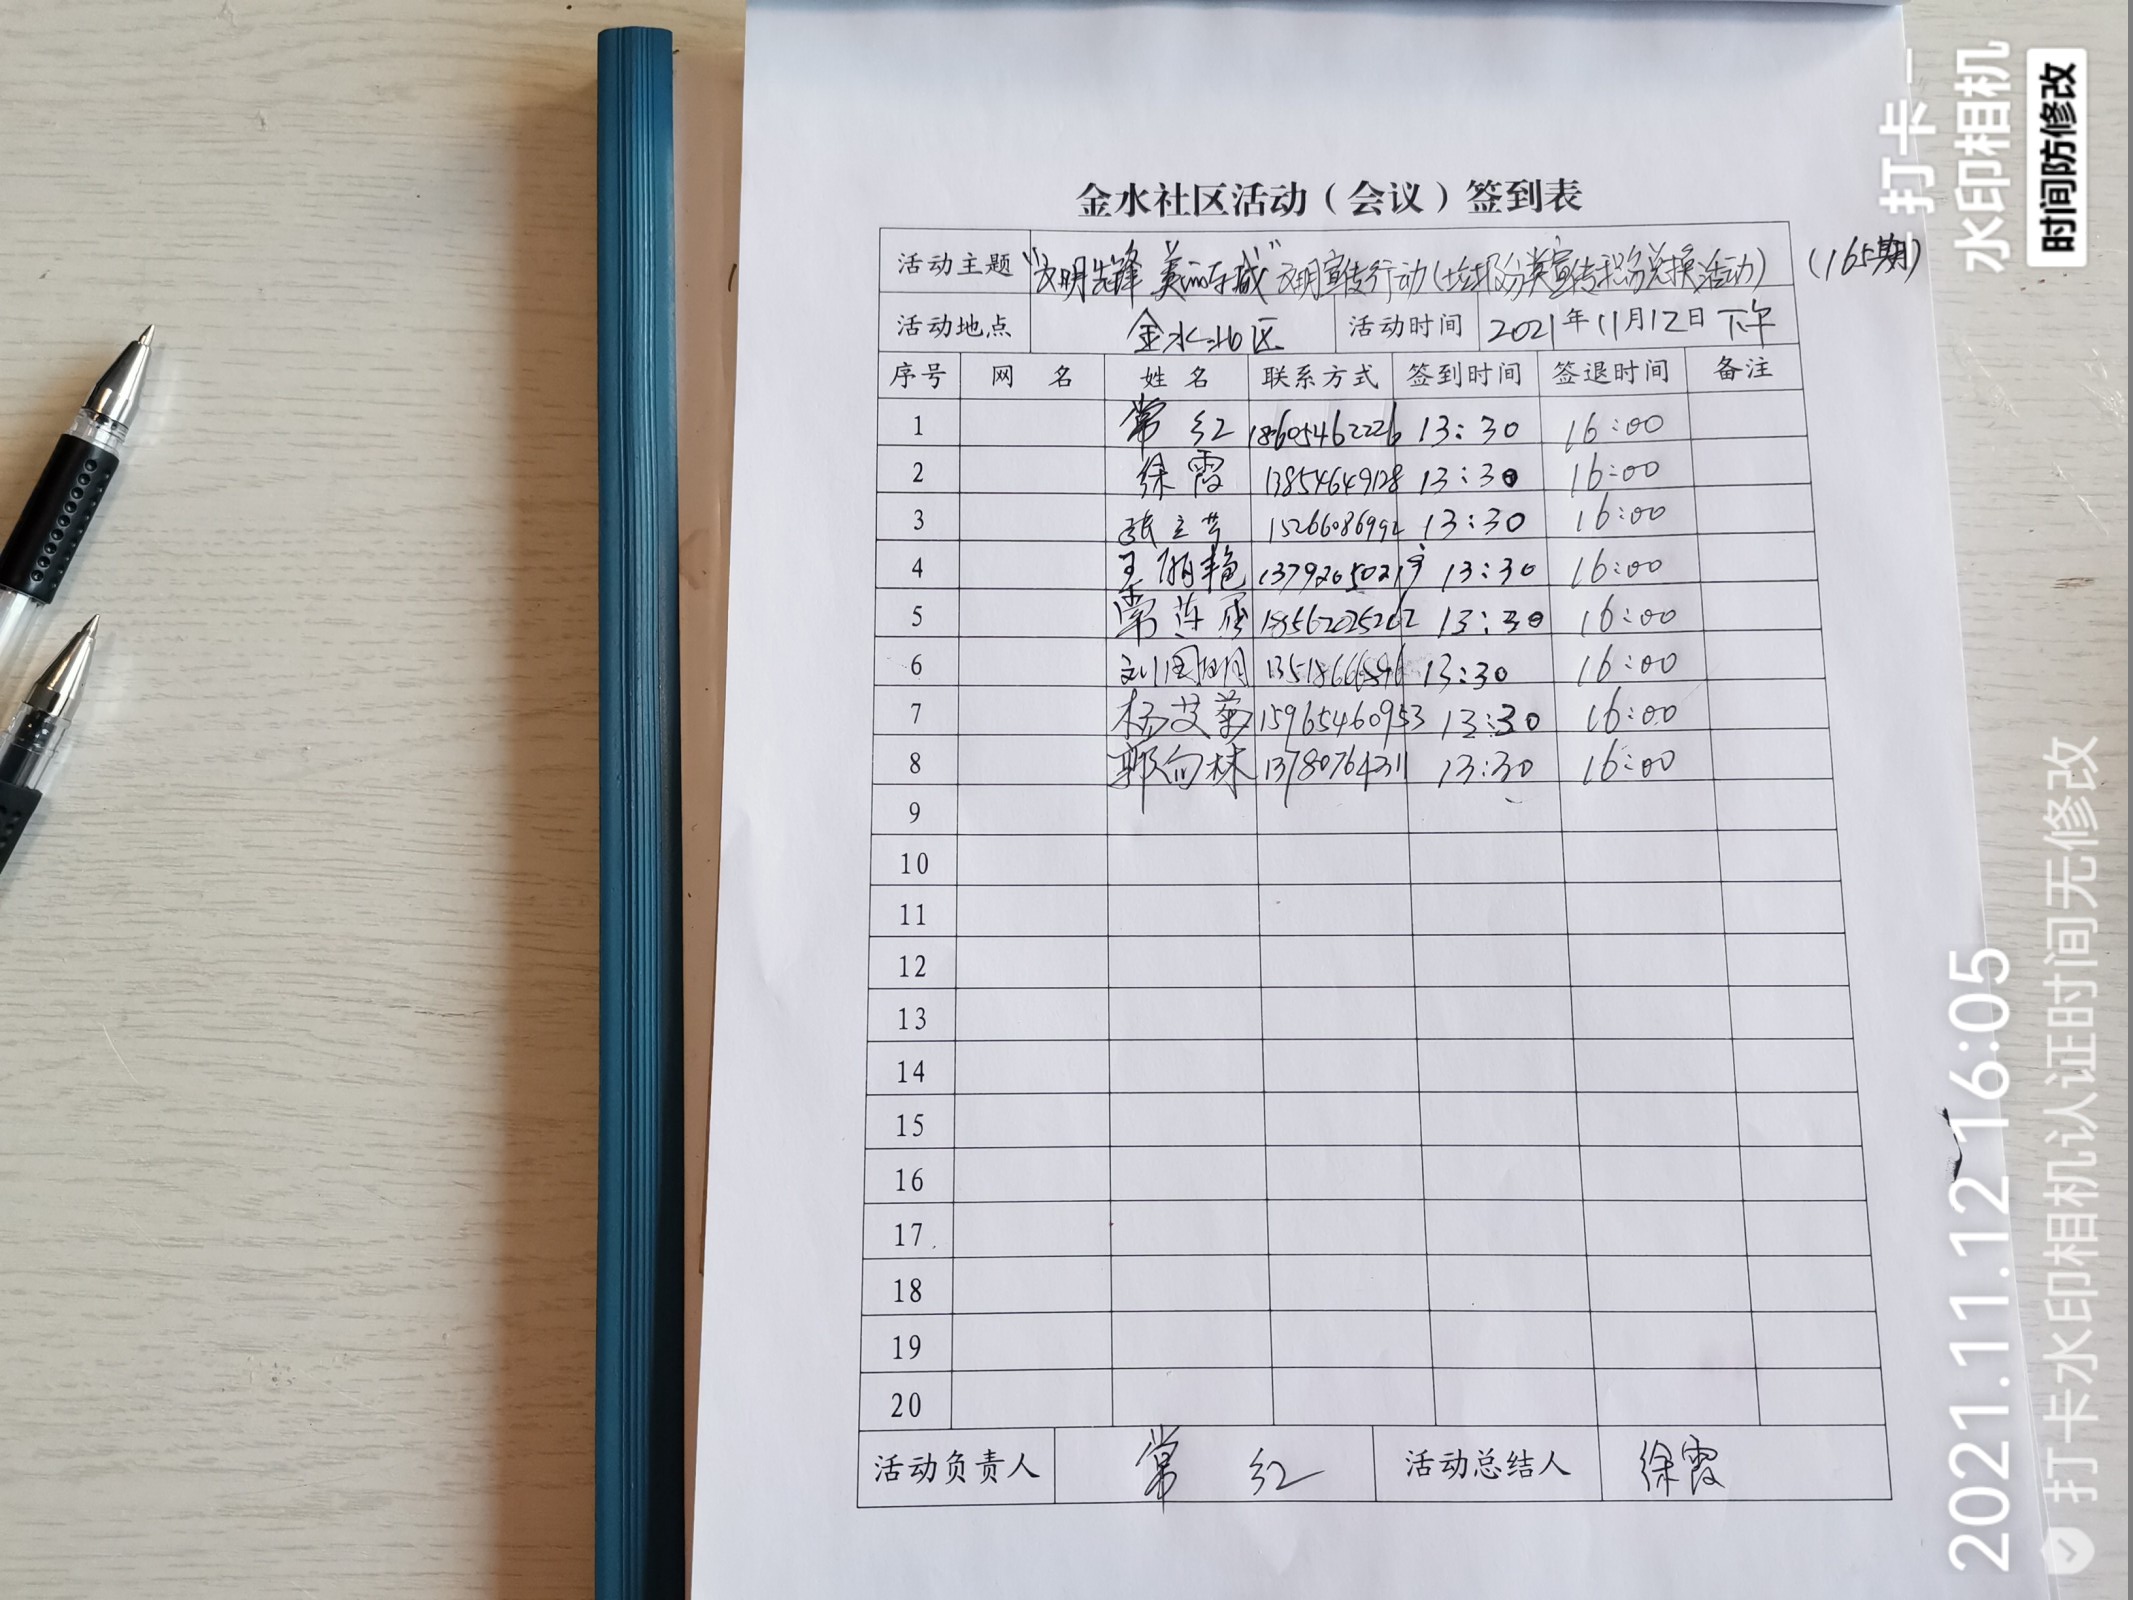 金水社区活动（会议）签到表
活动主题 "文明先锋 美丽东城"文明宣传行动（垃圾分类宣传积分兑换活动）（165期）
活动地点 金水社区 活动时间 2021年11月12日下午
序号 网 名 姓 名 联系方式 签到时间 签退时间 备注
1 常红 18605462226 13:30 16:00
2 徐霞 13854649128 13:30 16:00
3 张立芳 15266086992 13:30 16:00
4 王丽艳 13:30 16:00
5 常莲 13:30 16:00
6 刘 13:30 16:00
7 杨艾菊 15965460953 13:30 16:00
8 郭向林 13780764311 13:30 16:00
9
10
11
12
13
14
15
16
17
18
19
20
活动负责人 常红 活动总结人 徐霞
打卡
水印相机
时间防修改
2021.11.12 16:05
打卡水印相机认证时间无修改